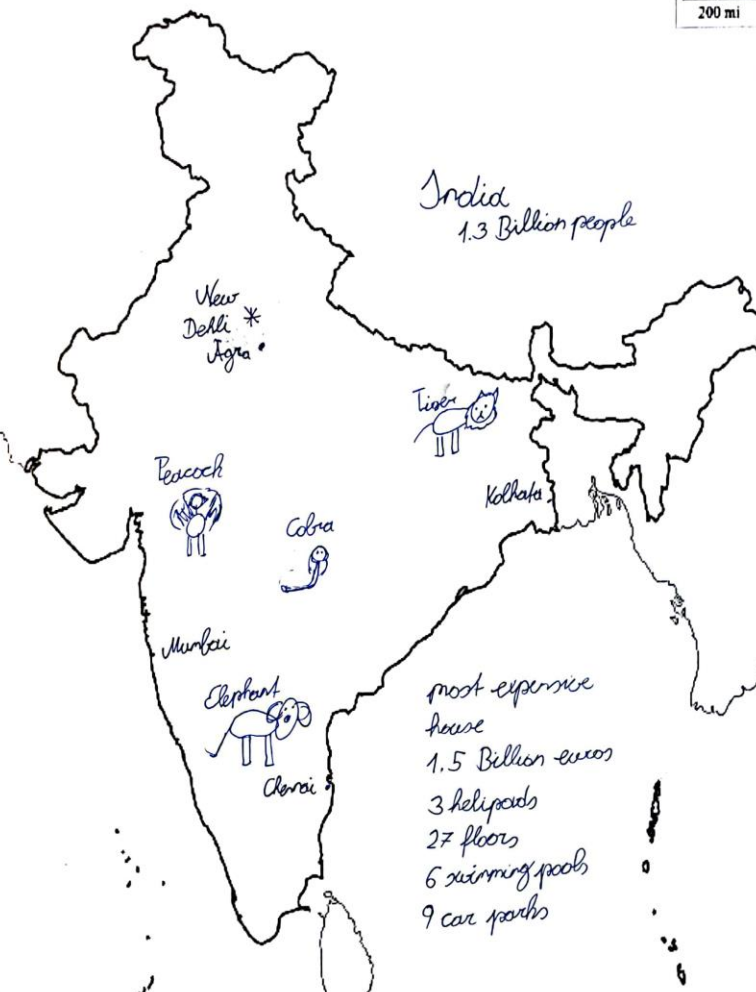 200 mi
India
1.3 Billion people
New
Dehli
Agra
Tiger
Peacock
Kolkata
Cobra
Mumbai
Elephant
Chennai
most expensive
house
1.5 Billion euros
3 helipads
27 floors
6 swimming pools
9 car parks